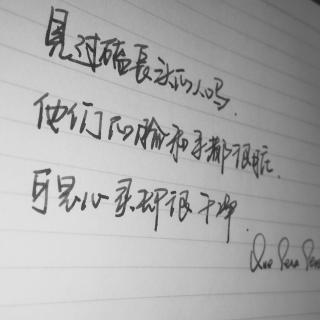 见过磕長头的人吗.
他们的脸和手都很脏.
可是心灵却很干净.
Que Sera